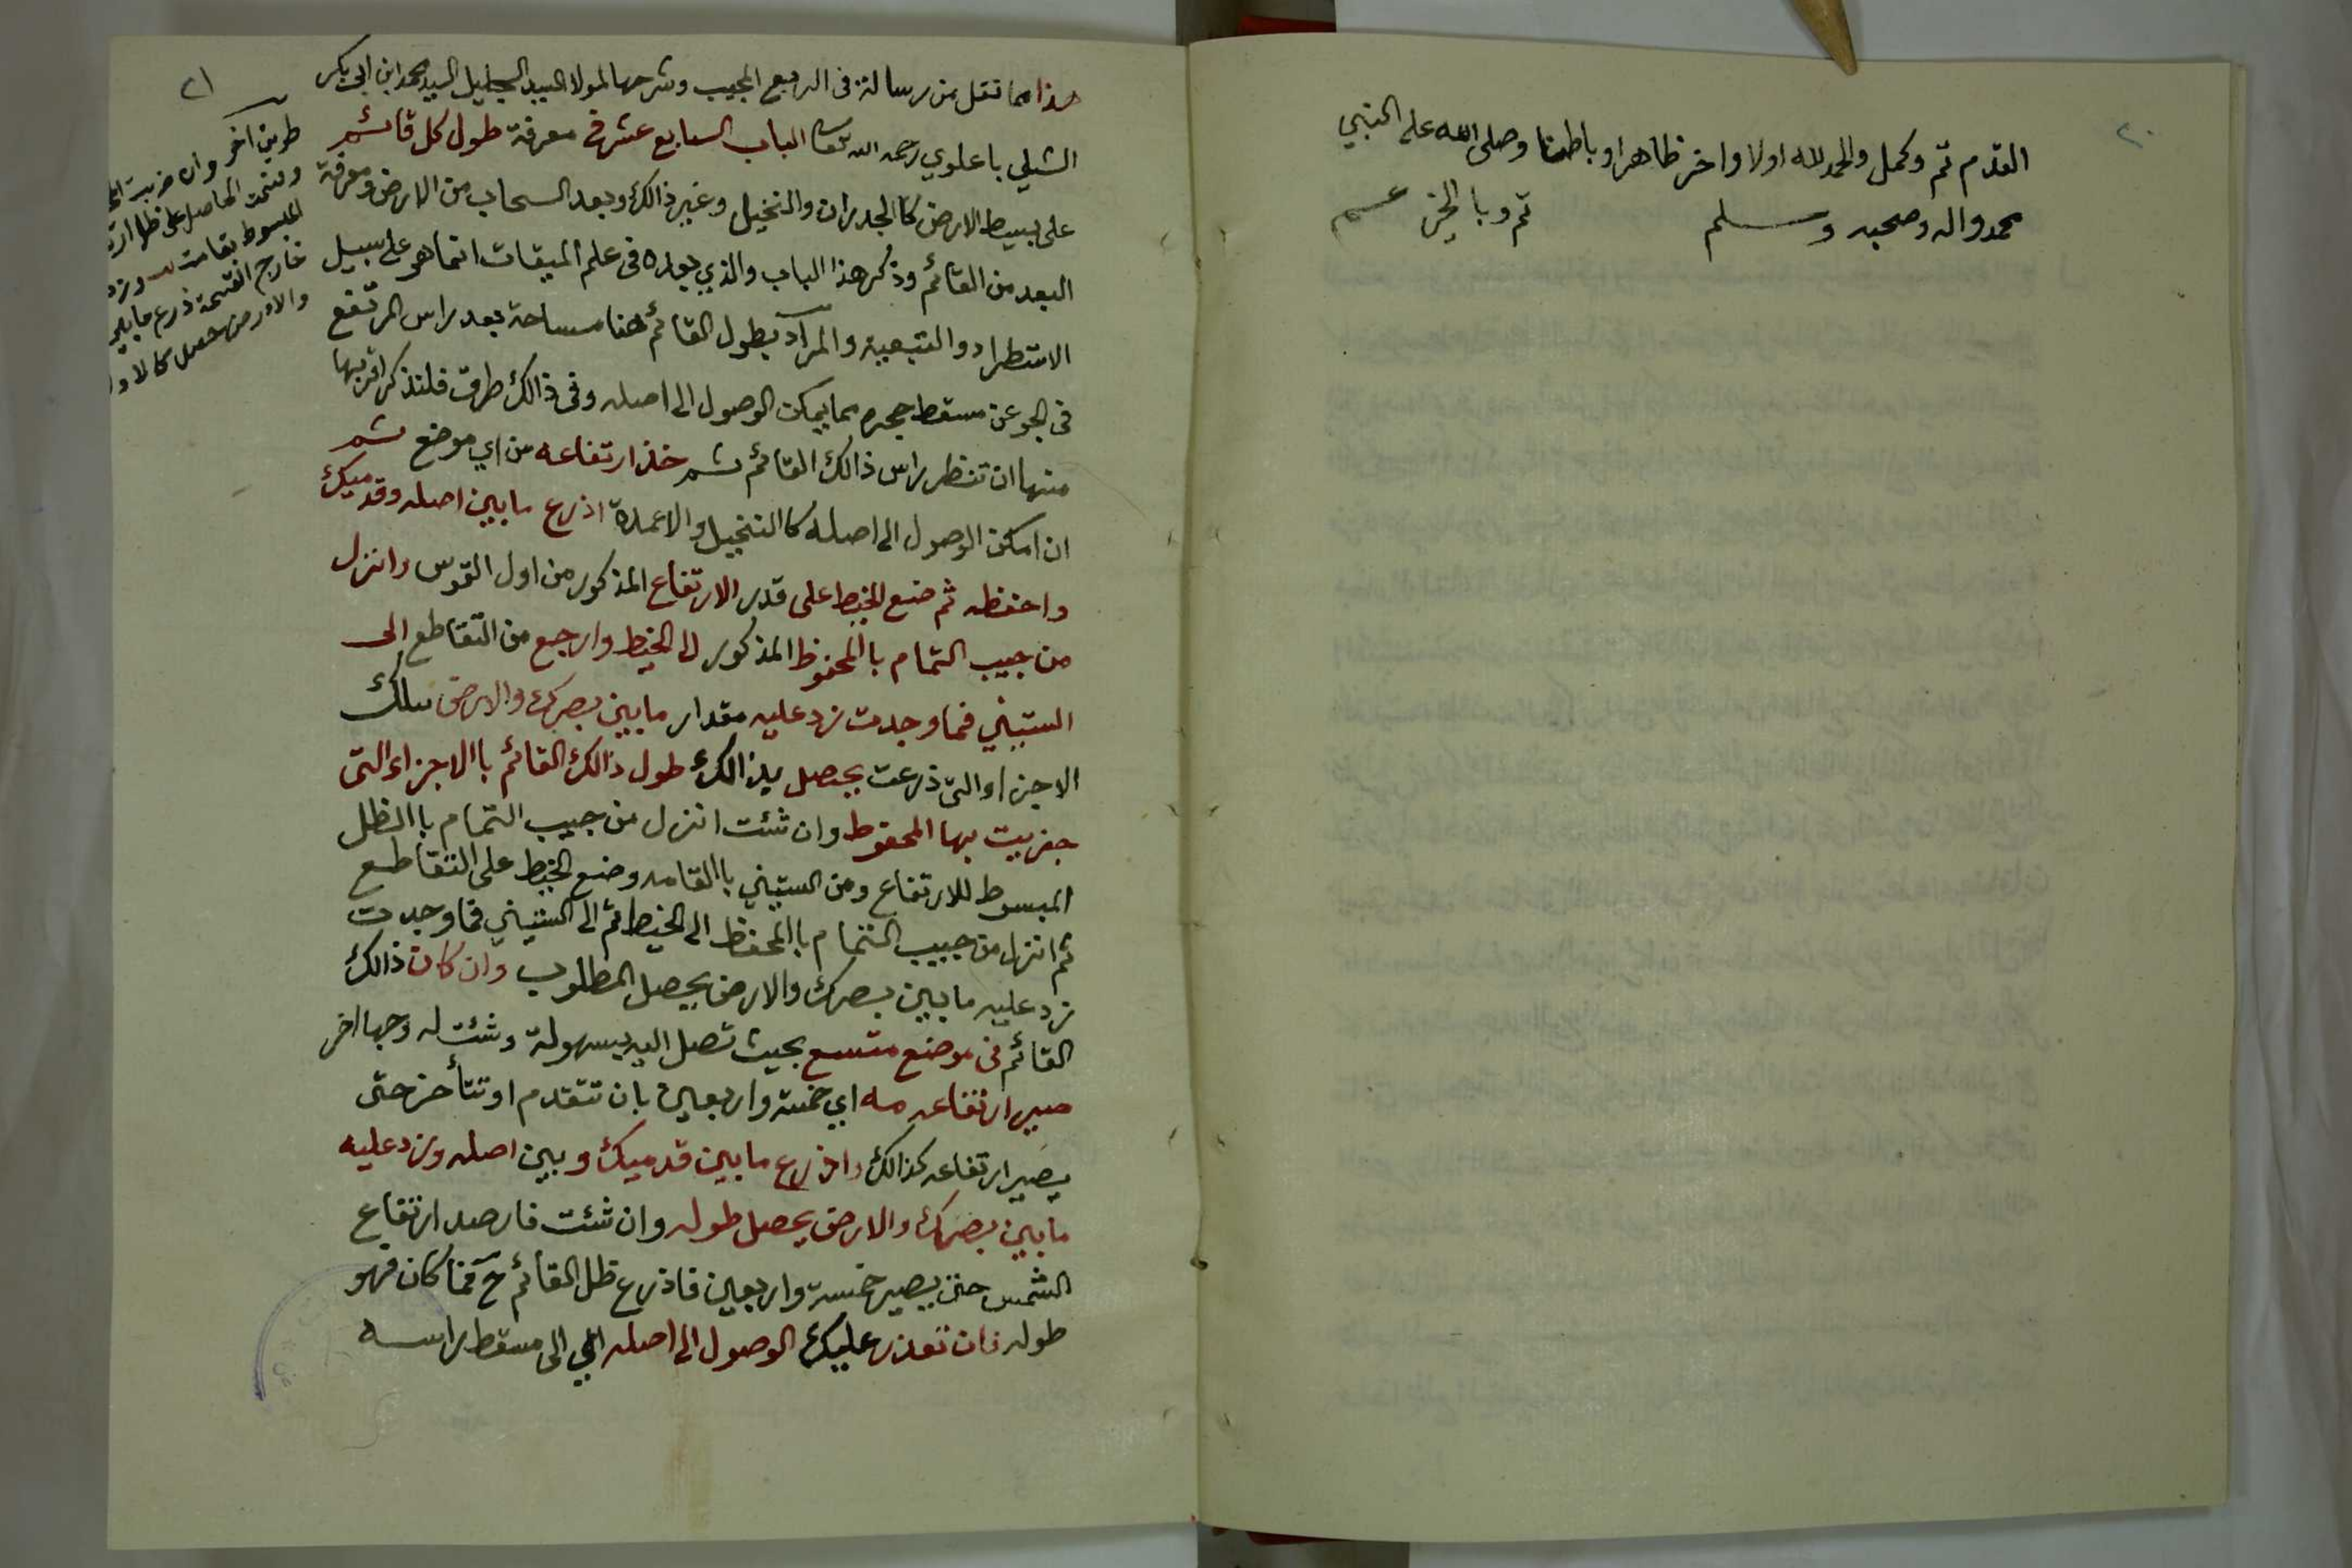 ٢٠
القدم تم وكمل والحمد لله اولا واخر ظاهرا وباطنا وصلى الله على النبي
محمد واله وصحبه وسلم تم وبالخير عم
٢١
هذا مما نقل من رسالة في الربع المجيب وشرحها لمولا السيد الجليل السيد محمد ابن ابي بكر
الشلي باعلوي رحمه الله تعالى الباب السابع عشر في معرفة طول كل قائم
على بسيط الارض كاالجدران والنخيل وغير ذالك وبعد السحاب من الارض ومعرفة
البعد من القائم وذكر هذا الباب والذي بعده في علم الميقات انما هو على سبيل
الاستطراد والتبعية والمراد بطول القائم هنا مساحة بعد راس المرتفع
في الجو عن مسقط حجره مما يمكن الوصول الى اصله وفي ذالك طرق فلنذكر اقربها
منها ان تنظر راس ذالك القائم ثم خذ ارتفاعه من اي موضع ثم
ان امكن الوصول الى اصله كاالنخيل والاعمدة اذرع مابين اصله وقدميك
واحفظه ثم ضع الخيط على قدر الارتفاع المذكور من اول القوس وانزل
من جيب التمام باالمحفوظ المذكور الى الخيط وارجع من التقاطع الى
الستيني فما وجدت زد عليه مقدار مابين بصرك والارض بتلك
الاجزاء والتي ذرعت يحصل بذالك طول ذالك القائم باالاجزاء التي
جزيت بها المحفوظ وان شئت انزل من جيب التمام باالظل
المبسوط للارتفاع ومن الستيني باالقامه وضع الخيط على التقاطع
ثم انزل من جيب التمام باالمحفظ الى الخيط ثم الى الستيني فما وجدت
زد عليه مابين بصرك والارض يحصل المطلوب وان كان ذالك
القائم في موضع متسع بحيث تصل اليه بسهولة وشئت له وجها اخر
صير ارتفاعه مه اي خمسة واربعين بان تتقدم او تتأخر حتى
يصير ارتفاعه كذالك واذرع مابين قدميك وبين اصله وزد عليه
مابين بصرك والارض يحصل طوله وان شئت فارصد ارتفاع
الشمس حتى يصير خمسة واربعين فاذرع ظل القائم ح فما كان فهو
طوله فان تعذر عليك الوصول الى اصله اي الى مسقط راسه
طريق آخر وان ضربت
وقسمت الحاصل على ظل
المبسوط بقامت وزد
خارج القسمة ذرع مابين
والارض حصل كالاول